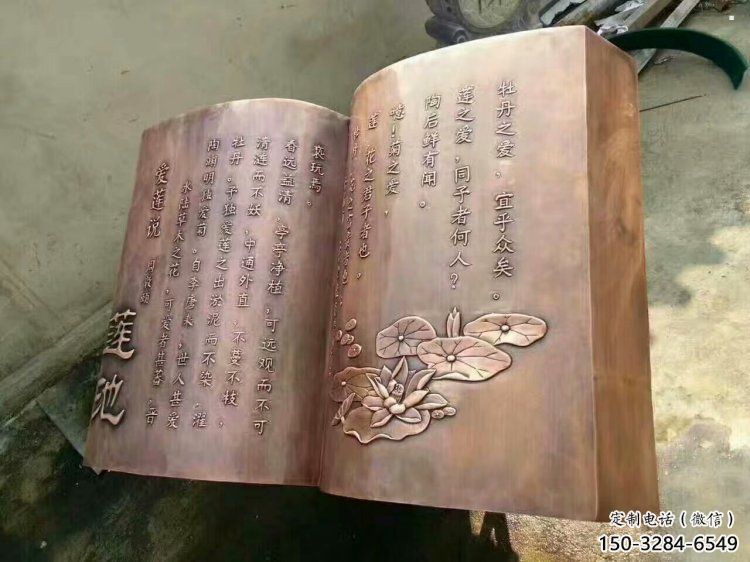 莲池
爱莲说 周敦颐
水陆草木之花,可爱者甚蕃,晋
陶渊明独爱菊。自李唐来,世人甚爱
牡丹。予独爱莲之出淤泥而不染,濯
清涟而不妖,中通外直,不蔓不枝,
香远益清,亭亭净植,可远观而不可
亵玩焉。
莲 花之君子者也。
噫!菊之爱,
陶后鲜有闻。
莲之爱,同子者何人?
牡丹之爱,宜乎众矣。
定制电话(微信)
150-3284-6549